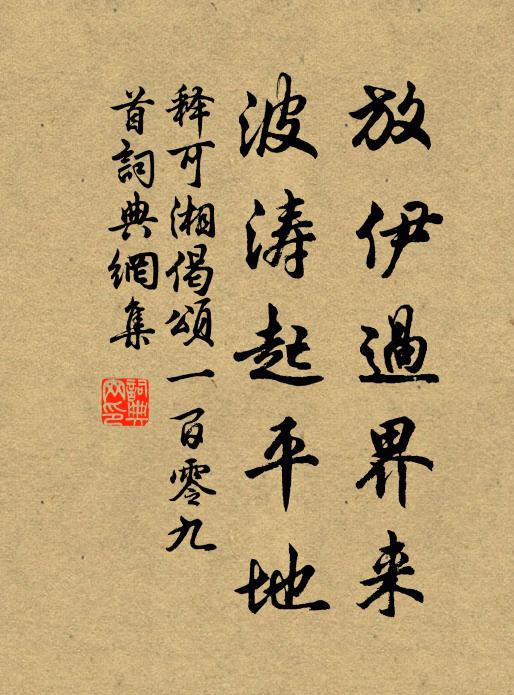 放伊過界来
波涛起平地
释可湘偈頌一百零九
首詞典網集
詞典